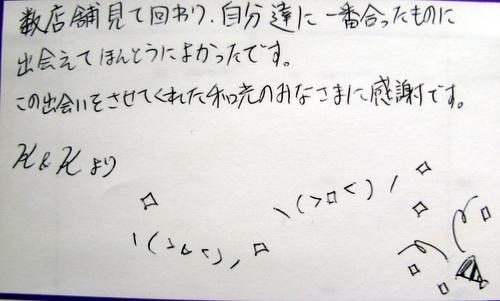 数店舗見て回わり、自分達に一番合ったものに
出会えてほんとうによかったです。
この出会いをさせてくれた和光のみなさまに感謝です。
K & K より
\(>ロ<)/
\(>&<)/